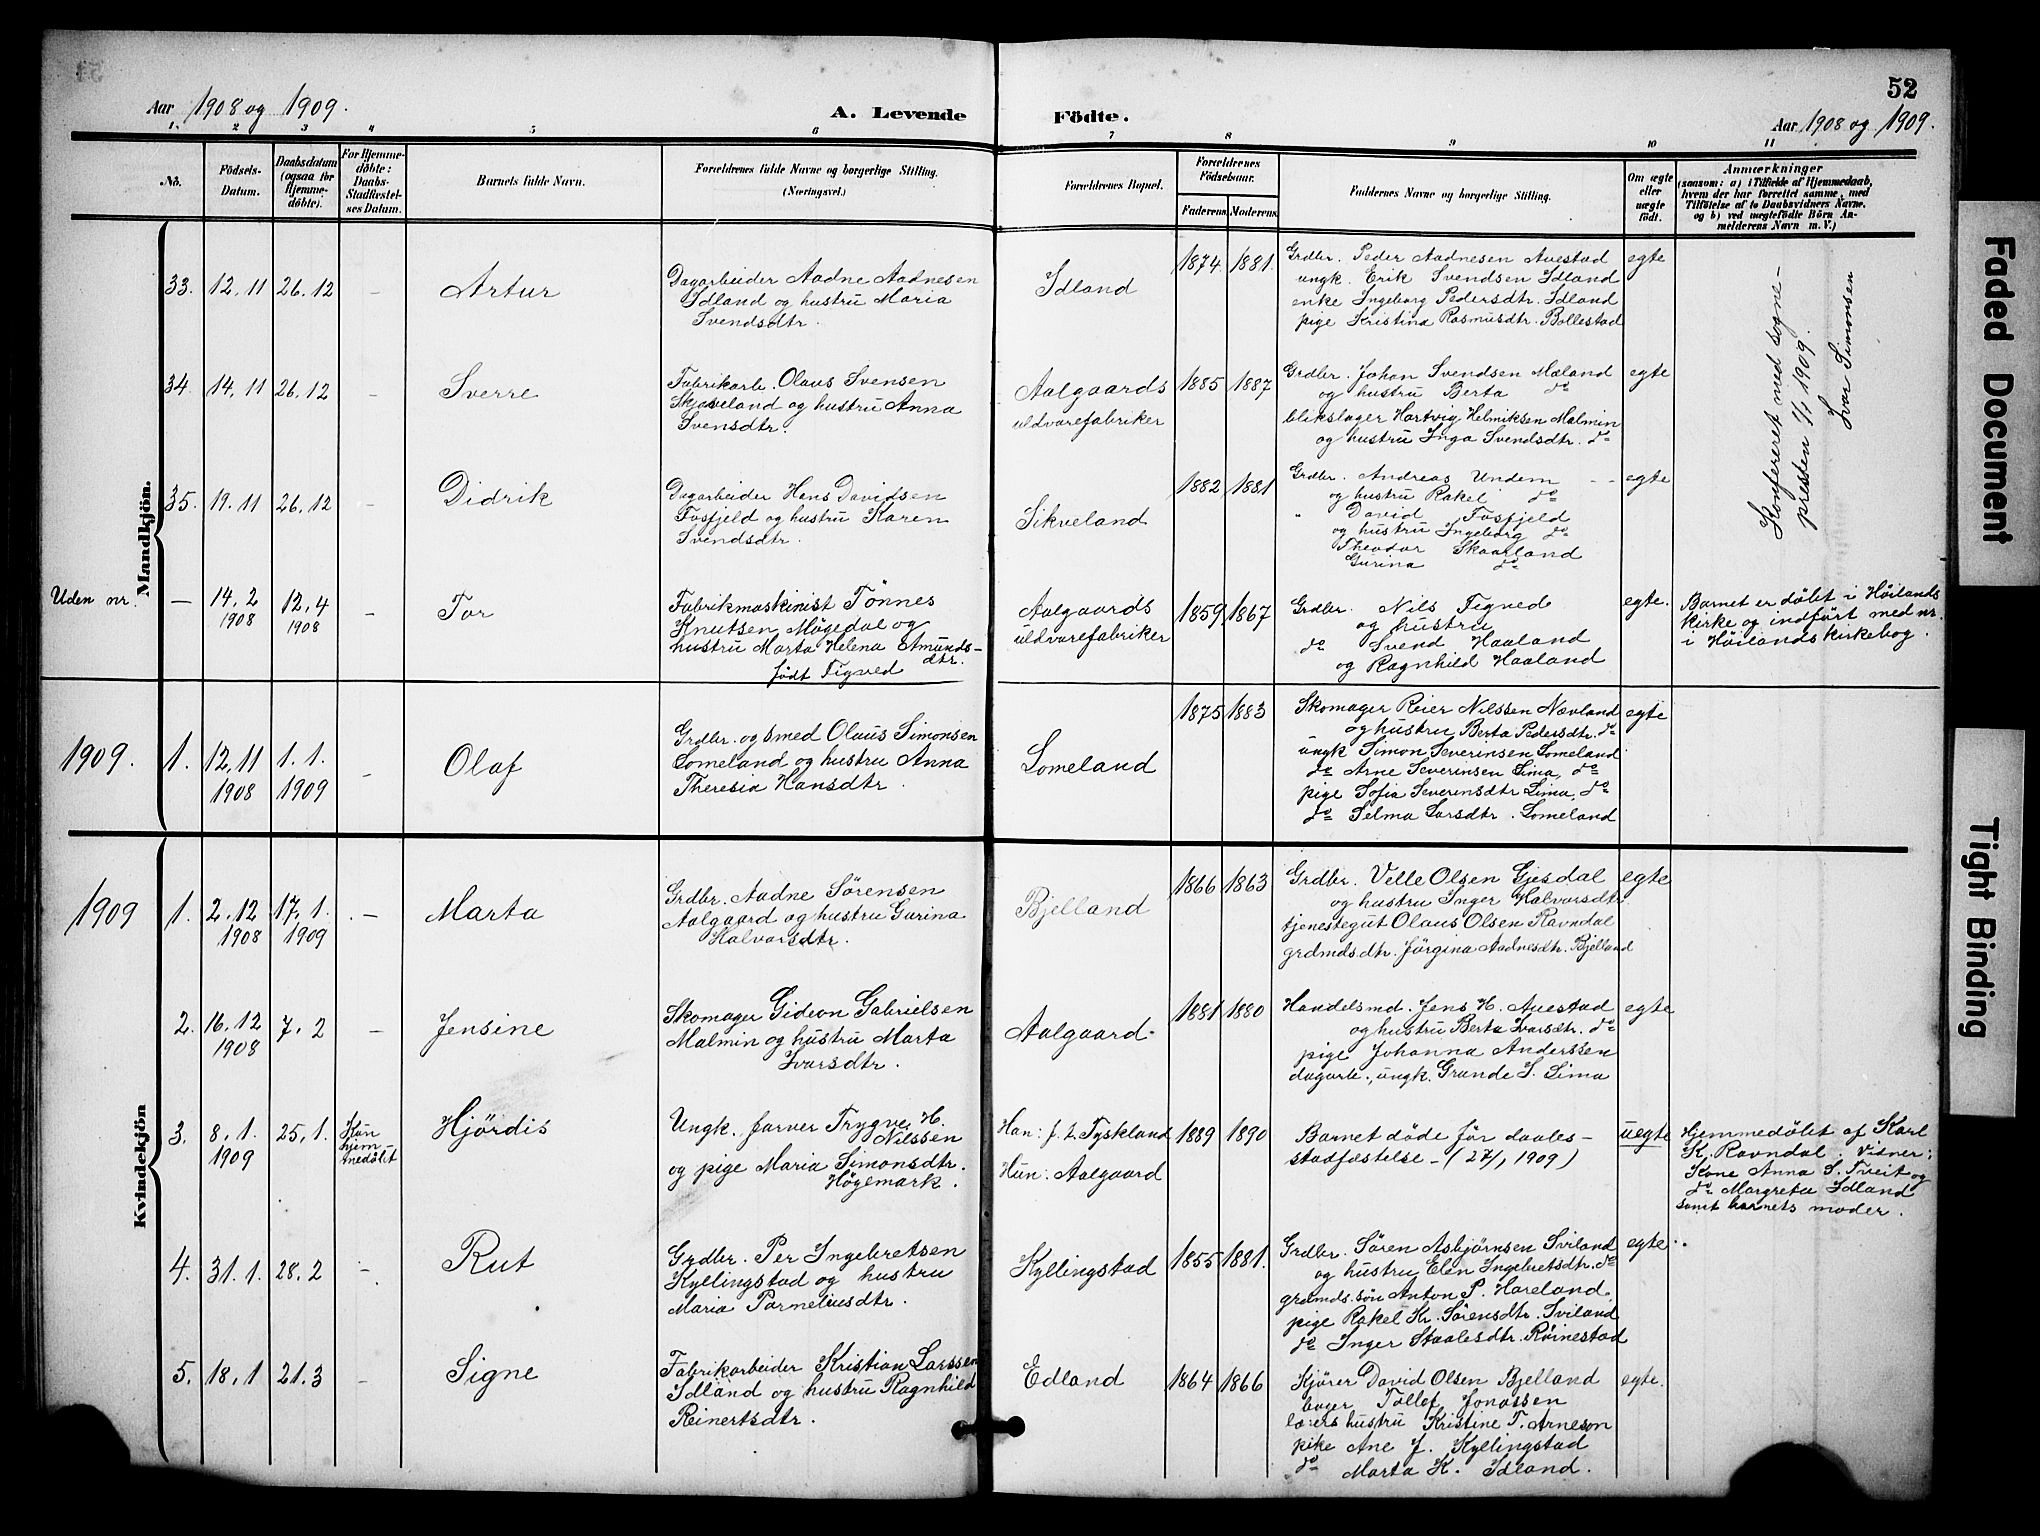 52
Aar 1908 og 1909.
A. Levende Födte.
Aar 1908 og 1909.
1. 2 3 4 5 6 7 8 9 10 11
No.
Födsels-
Datum.
Daabsdatum
(ogsaa for
Hjemme-
döbte).
For Hjemme-
döbte:
Daabs-
Stadfæstel-
ses Datum.
Barnets fulde Navn.
Forældrenes fulde Navne og borgerlige Stilling.
(Næringsvei.)
Forældrenes Bopæl.
Forældrenes
Födselsaar.
Faderens. Moderens.
Faddernes Navne og borgerlige Stilling.
Om ægte
eller
uægte
födt.
Anmærkninger
(saasom: a) i Tilfælde af Hjemmedaab,
hvem der har forrettet samme, med
Tilföielse af to Daabsvidners Navne,
og b) ved uægtefödte Börn An-
melderens Navn m. V.)
Mandkjön.
33. 12.11 26.12 - Artur
Dagarbeider Aadne Aadnesen
Idland og hustru Maria
Svendsdtr.
Idland
1874 1881.
Grdbr. Peder Aadnesen Auestad
ungk. Erik Svendsen Idland
enke Ingeborg Pedersdtr. Idland
pige Kristina Rasmusdtr. Bollestad
egte
34 14.11 26.12 - Sverre
Fabrikarb. Olaus Svensen
Skjæveland og hustru Anna
Svensdtr.
Aalgaards
uldvarefabriker
1885 1887
Grdbr. Johan Svendsen Mæland
og hustru Berta do
blikslager Hartvig Helmiksen Malmin
og hustru Inga Svendsdtr. do
egte
35. 19.11 26.12 - Didrik
Dagarbeider Hans Davidsen
Fosfjeld og hustru Karen
Svendsdtr.
Sikveland
1882 1881
Grdbr. Andreas Undem
og hustru Rakel do
" David Fosfjeld
og hustru Ingeborg do
Theodor Skaarland
Gurina do
egte
Konfereret med sogne-
presten 1/1 1909.
Ivar Simonsen
Uden nr. - 14.2 1908 12.4 1908 - Tor
Fabrikmaskinist Tönnes
Knutsen Mögedal og
hustru Marta Helena Amunds-
dtr.
födt Figved
Aalgaards
uldvarefabriker
1859 1867
Grdbr. Nils Figved
og hustru
do Svend Haaland
og Ragnhild Haaland
egte.
Barnet er döbt i Höilands
kirke og indfört med nr.
i Höilands kirkebog.
1909. 1. 12.11 1908 1.1. 1909 - Olaf
Grdbr. og smed Olaus Simonsen
Lomeland og hustru Anna
Theresia Hansdtr.
Lomeland
1875 1883
Skomager Reier Nilssen Nævland
og hustru Berta Pedersdtr. do
ungk Simon Severinsen Lomeland
do Arne Severinsen Lima, do
pige Sofia Severinsdtr Lima, do
do Selma Larsdtr. Lomeland
egte
Kvindekjön
1909 1. 2.12 1908 17.1. 1909 - Marta
Grdbr. Aadne Sörensen
Aalgaard og hustru Gurina
Halvorsdtr.
Bjelland
1866 1863
Grdbr. Velle Olsen Gjesdal
og hustru Inger Halvorsdtr.
tjenestegut Olaus Olsen Ravndal
grdmds.dtr. Jörgina Aadnesdtr. Bjelland
egte
2. 16.12 1908 7.2 - Jensine
Skomager Gideon Gabrielsen
Malmin og hustru Marta
Ivarsdtr.
Aalgaard.
1881 1880
Handelsmd. Jens H. Auestad
og hustru Berta Ivarsdtr. do
pige Johanna Anderssen
dagarb., ungk. Grunde S. Lima
egte
3. 8.1. 1909 25.1. Kun
hjem
medöbt
Hjördis
Ungk. farver Trygve H.
Nilssen
og pige Maria Simonsdtr.
Högemark.
Han: f. t. Tyskland
Hun: Aalgaard
1889 1890
Barnet döde för daabs-
stadfæstelse - (27/1 1909)
uegte
Hjemmedöbt af Karl
K. Ravndal. Vidner:
Kone Anna S. Tveit og
do Margreta Idland
samt barnets moder.
4. 31.1. 28.2 - Rut
Grdbr. Per Ingebretsen
Kyllingstad og hustru
Maria Parneliusdtr.
Kyllingstad
1855 1881.
Grdbr. Sören Asbjörnsen Sviland
og hustru Elen Ingebretsdtr. do
grdmds.sön Anton P. Hareland,
pige Rakel Kr. Sörensdtr. Sviland
do Inger Staalesdtr. Röinestad
egte.
5. 18.1 21.3 - Signe
Fabrikarbeider Kristian Larssen
Idland og hustru Ragnhild
Reinertsdtr.
Edland
1864 1866
Kjörer David Olsen Bjelland
bager Tollef Jonassen
lærers hustru Kristine T. Arneson
pike Ane J. Kyllingstad
do Marta K. Idland.
egte.
Faded Document
Tight Binding